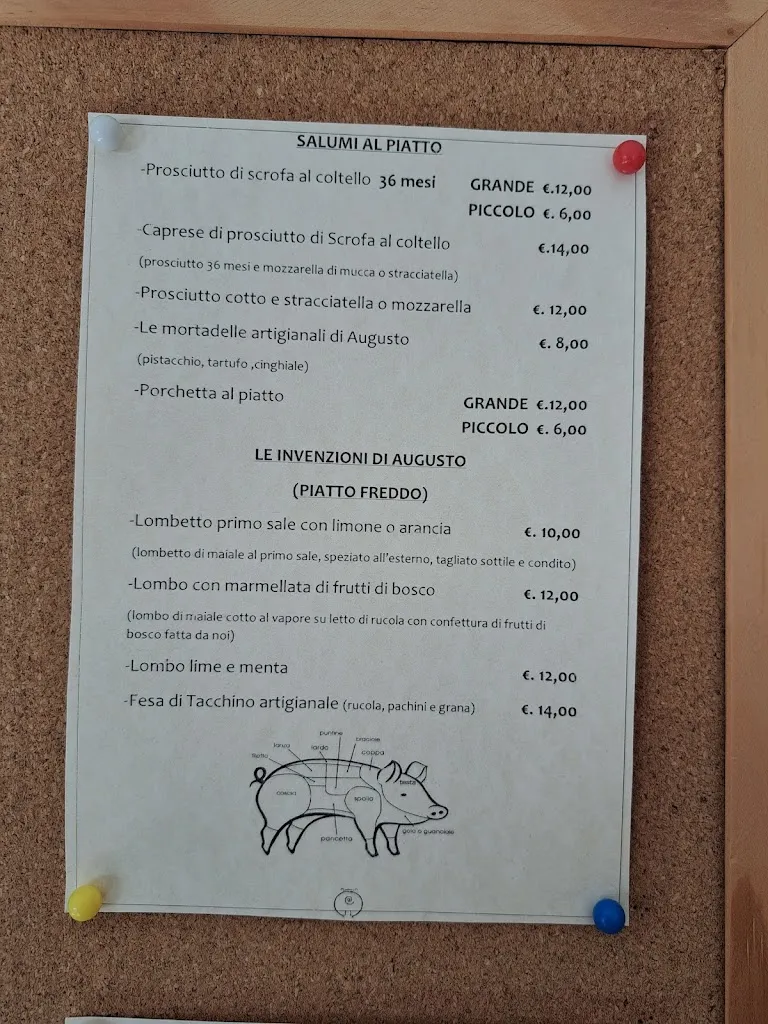 SALUMI AL PIATTO
-Prosciutto di scrofa al coltello 36 mesi GRANDE €.12,00
PICCOLO €. 6,00
-Caprese di prosciutto di Scrofa al coltello €.14,00
(prosciutto 36 mesi e mozzarella di mucca o stracciatella)
-Prosciutto cotto e stracciatella o mozzarella €. 12,00
-Le mortadelle artigianali di Augusto €. 8,00
(pistacchio, tartufo ,cinghiale)
-Porchetta al piatto GRANDE €.12,00
PICCOLO €. 6,00
LE INVENZIONI DI AUGUSTO
(PIATTO FREDDO)
-Lombetto primo sale con limone o arancia €. 10,00
(lombetto di maiale al primo sale, speziato all'esterno, tagliato sottile e condito)
-Lombo con marmellata di frutti di bosco €. 12,00
(lombo di maiale cotto al vapore su letto di rucola con confettura di frutti di
bosco fatta da noi)
-Lombo lime e menta €. 12,00
-Fesa di Tacchino artigianale (rucola, pachini e grana) €. 14,00
puntine
lonza lardo braciole
filetto coppa
testa
coscia spalla
gola o guanciale
pancetta